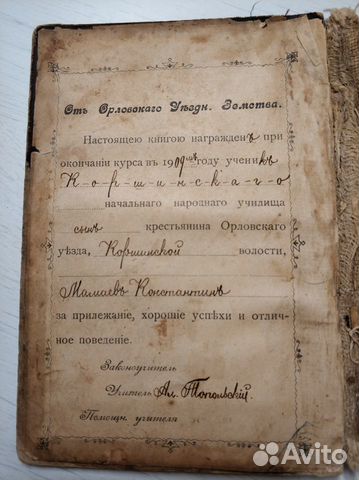 Отъ Орловскаго Уѣздн. Земства.
Настоящею книгою награжденъ при
окончаніи курса въ 1909 году ученикъ
К-о-р-ш-и-н-с-к-а-г-о
начальнаго народнаго училища
сынъ крестьянина Орловскаго
уѣзда, Коршинской волости,
Мамаевъ Константинъ
за прилежаніе, хорошіе успѣхи и отлич-
ное поведеніе.
Законоучитель
Учитель Ал. Топольскій
Помощн. учителя
Avito